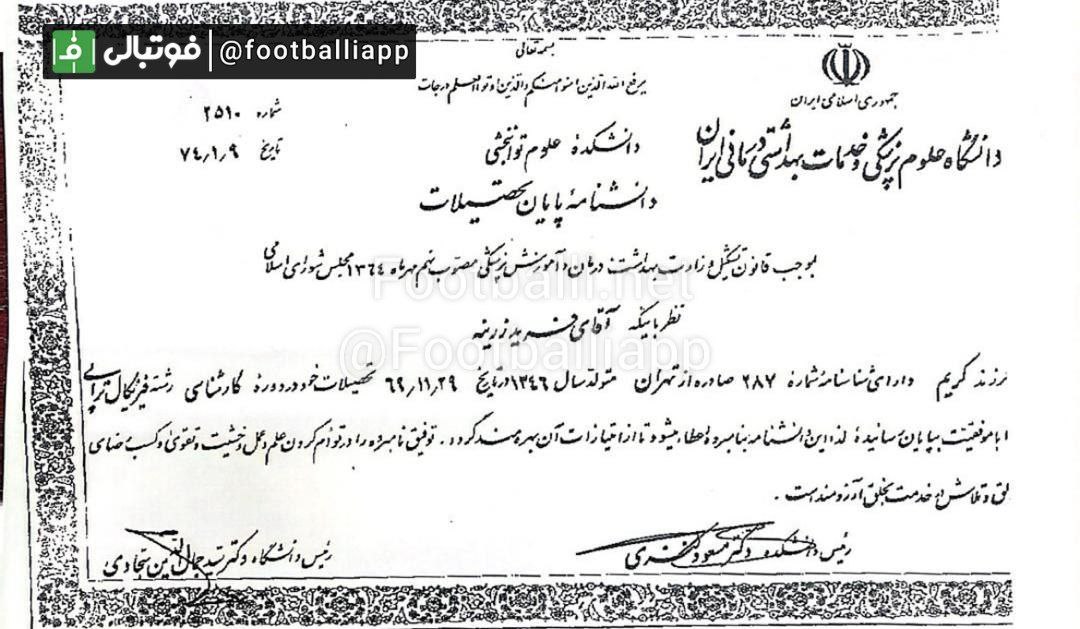 فوتبالی | @footballiapp
بسمه تعالی
یرفع الله الذین امنوا منکم و الذین اوتوا العلم درجات
جمهوری اسلامی ایران
دانشگاه علوم پزشکی و خدمات بهداشتی درمانی ایران
شماره ۲۵۱۰
تاریخ ۷۴٫۱٫۹
دانشکدهٔ علوم توانبخشی
دانشنامهٔ پایان تحصیلات
بموجب قانون تشکیل وزارت بهداشت درمان و آموزش پزشکی مصوب نهم مهرماه ۱۳۶۴ مجلس شورای اسلامی
نظر باینکه آقای فرید زرینه
فرزند کریم دارای شناسنامه شمارهٔ ۲۸۷ صادره از تهران متولد سال ۱۳۴۶ در تاریخ ۶۹٫۱۱٫۲۹ تحصیلات خود در دورهٔ کارشناسی رشته فیزیکال تراپی
را با موفقیت بپایان رسانیده لذا این دانشنامه بنامبرده اعطاء میشود تا از امتیازات آن بهره‌مند گردد. توفیق نامبرده را در توأم کردن علم و عمل و خشیت و تقوی و کسب رضای
خالق و تلاش در خدمت بخلق آرزومند است.
رئیس دانشکده دکتر مسعود
رئیس دانشگاه دکتر سید جمال الدین سجادی
Footballi.net
@Footballiapp